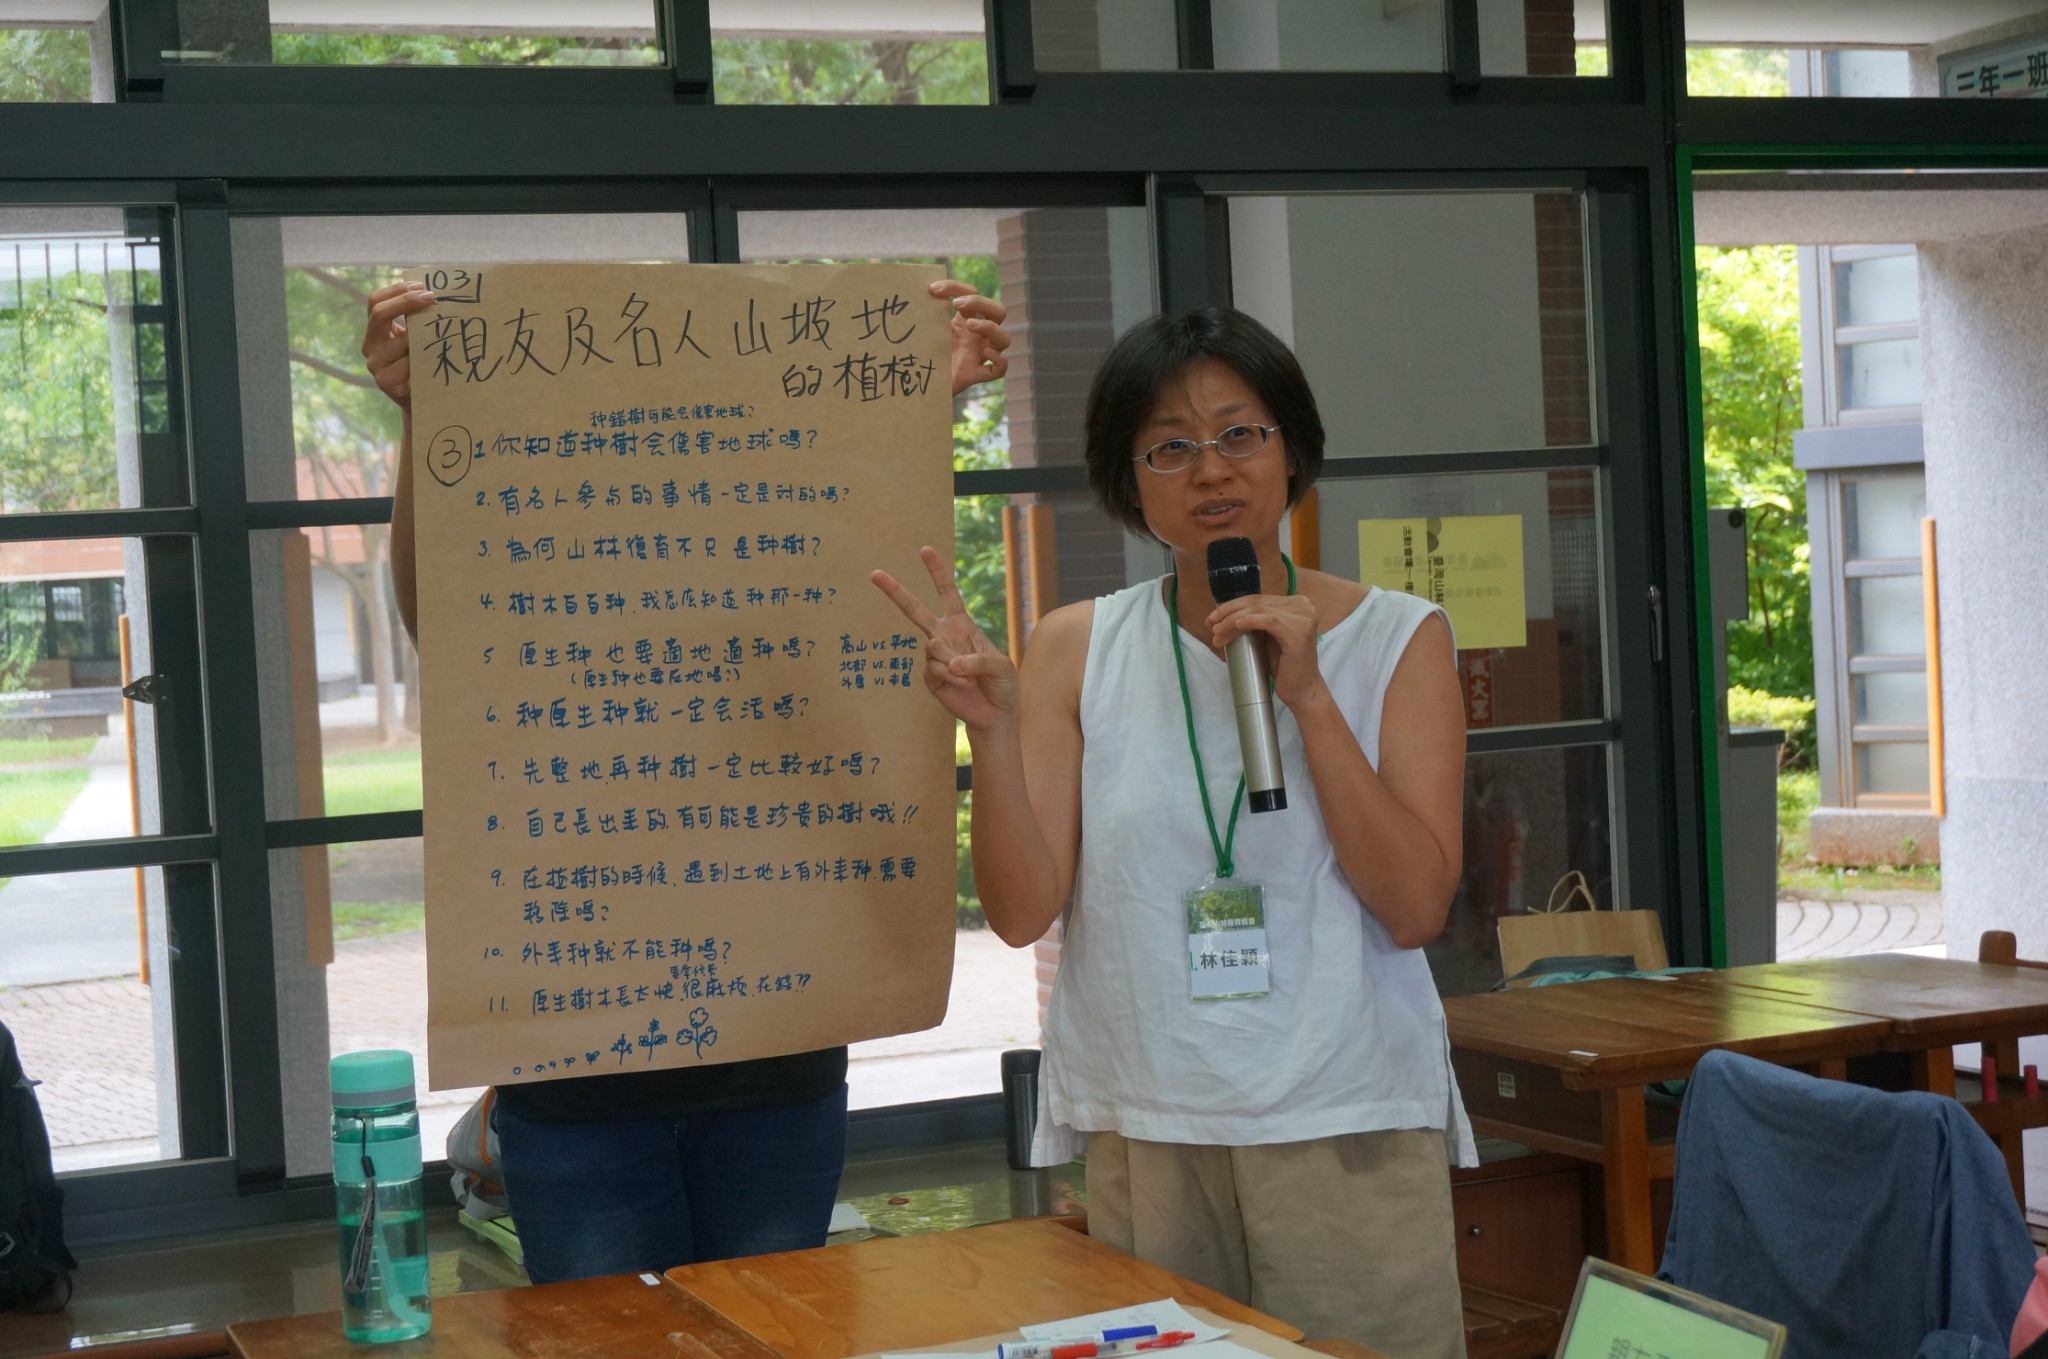 三年一班
1031
親友及名人山坡地
的植樹
种錯樹可能会傷害地球?
③ 1 你知道种樹会傷害地球嗎?
2. 有名人參与的事情一定是对的嗎?
3. 為何山林復育不只是种樹?
4. 樹木百百种,我怎麼知道种那一种?
5 原生种也要適地適种嗎?
(原生种也要在地嗎?)
高山 vs. 平地
北部 vs. 南部
外島 vs 本島
6. 种原生种就一定会活嗎?
7. 先整地再种樹一定比較好嗎?
8. 自己長出來的,有可能是珍貴的樹哦!!
9. 在植樹的時候,遇到土地上有外來种,需要
移除嗎?
10. 外來种就不能种嗎?
11. 原生樹木長太快,很麻煩,花錢??
臺灣山林
活動會場
滅火器
林佳穎